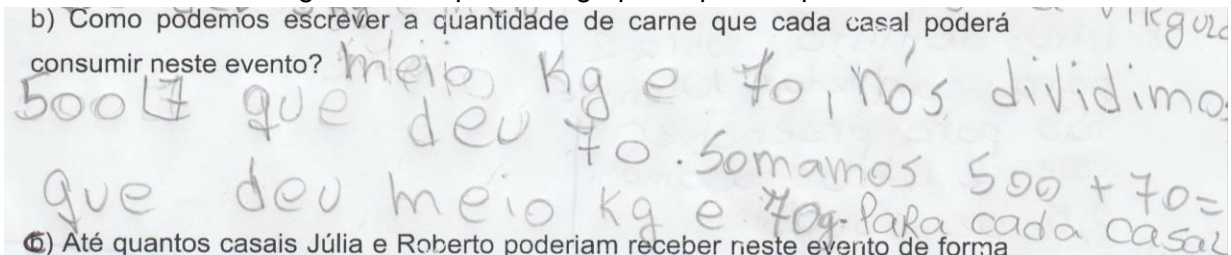 b) Como podemos escrever a quantidade de carne que cada casal poderá
consumir neste evento? meio kg e 70, nós dividimo
500 7 que deu 70. Somamos 500 + 70=
que deu meio kg e 70g. paRa cada casal
c) Até quantos casais Júlia e Roberto poderiam receber neste evento de forma